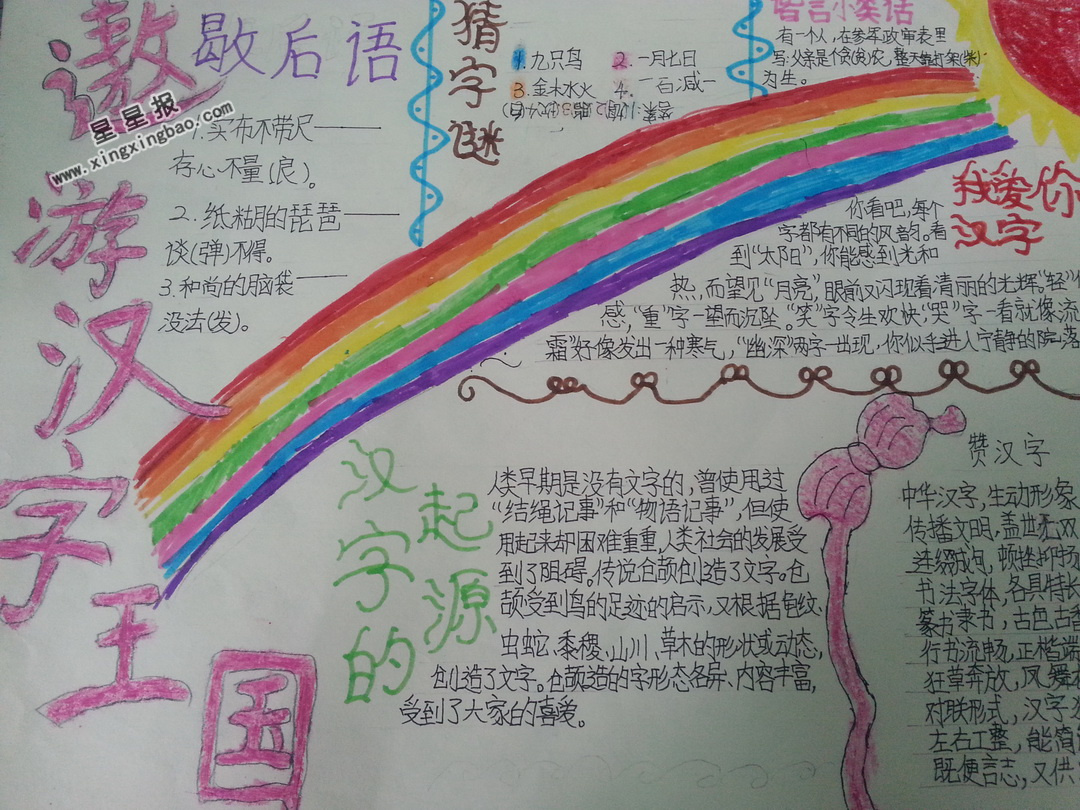 遨游汉字王国
星星报
www.xingxingbao.com
歇后语
1.买布不带尺——
存心不量(良)。
2.纸粘的琵琶——
谈(弹)不得。
3.和尚的脑袋——
没法(发)。
猜字谜
1.九只鸟 2.一月七日
3.金木水火 4.一百减一
谐言小笑话
有一个人,在参军政审表里
写:父亲是个贫(贪)农,整天靠打架(柴)
为生。
我爱你
汉字
你看吧,每个
字都有不同的风韵。看
到“太阳”,你能感到光和
热,而望见“月亮”,眼前又闪现着清丽的光辉。“轻”
感,“重”字一望而沉坠。“笑”字令生欢快,“哭”字一看就像流
霜”好像发出一种寒气,“幽深”两字一出现,你似乎进入宁静的院落
汉字的
起源
人类早期是没有文字的,曾使用过
“结绳记事”和“物语记事”,但使
用起来却困难重重,人类社会的发展受
到了阻碍。传说仓颉创造了文字。仓
颉受到鸟的足迹的启示,又根据龟纹、
虫蛇、黍稷、山川、草木的形状或动态,
创造了文字。仓颉造的字形态各异、内容丰富,
受到了大家的喜爱。
赞汉字
中华汉字,生动形象
传播文明,盖世无双
连缀成句,顿挫抑扬
书法字体,各具特长
篆书隶书,古色古香
行书流畅,正楷端
狂草奔放,凤舞
对联形式,汉字
左右工整,能简
既便言志,又供